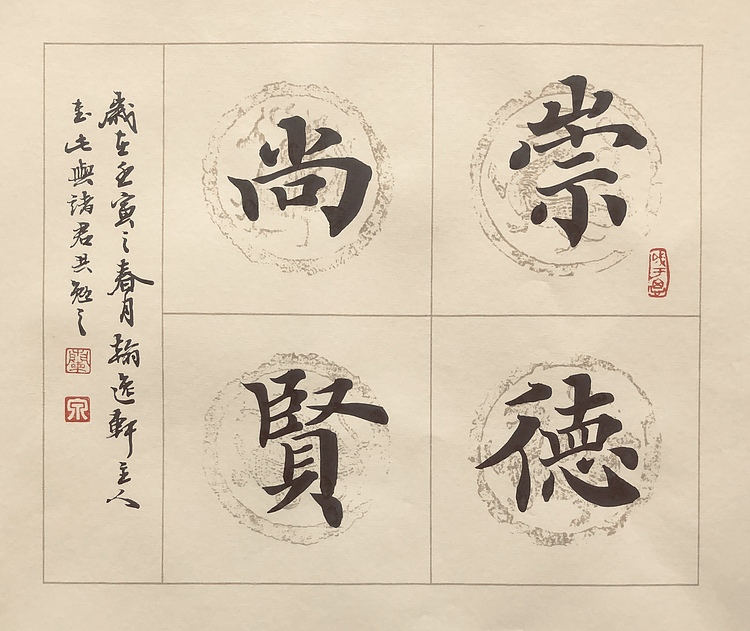 崇德
尚賢
歲在壬寅之春月翰逸軒主人
書此與諸君共勉之